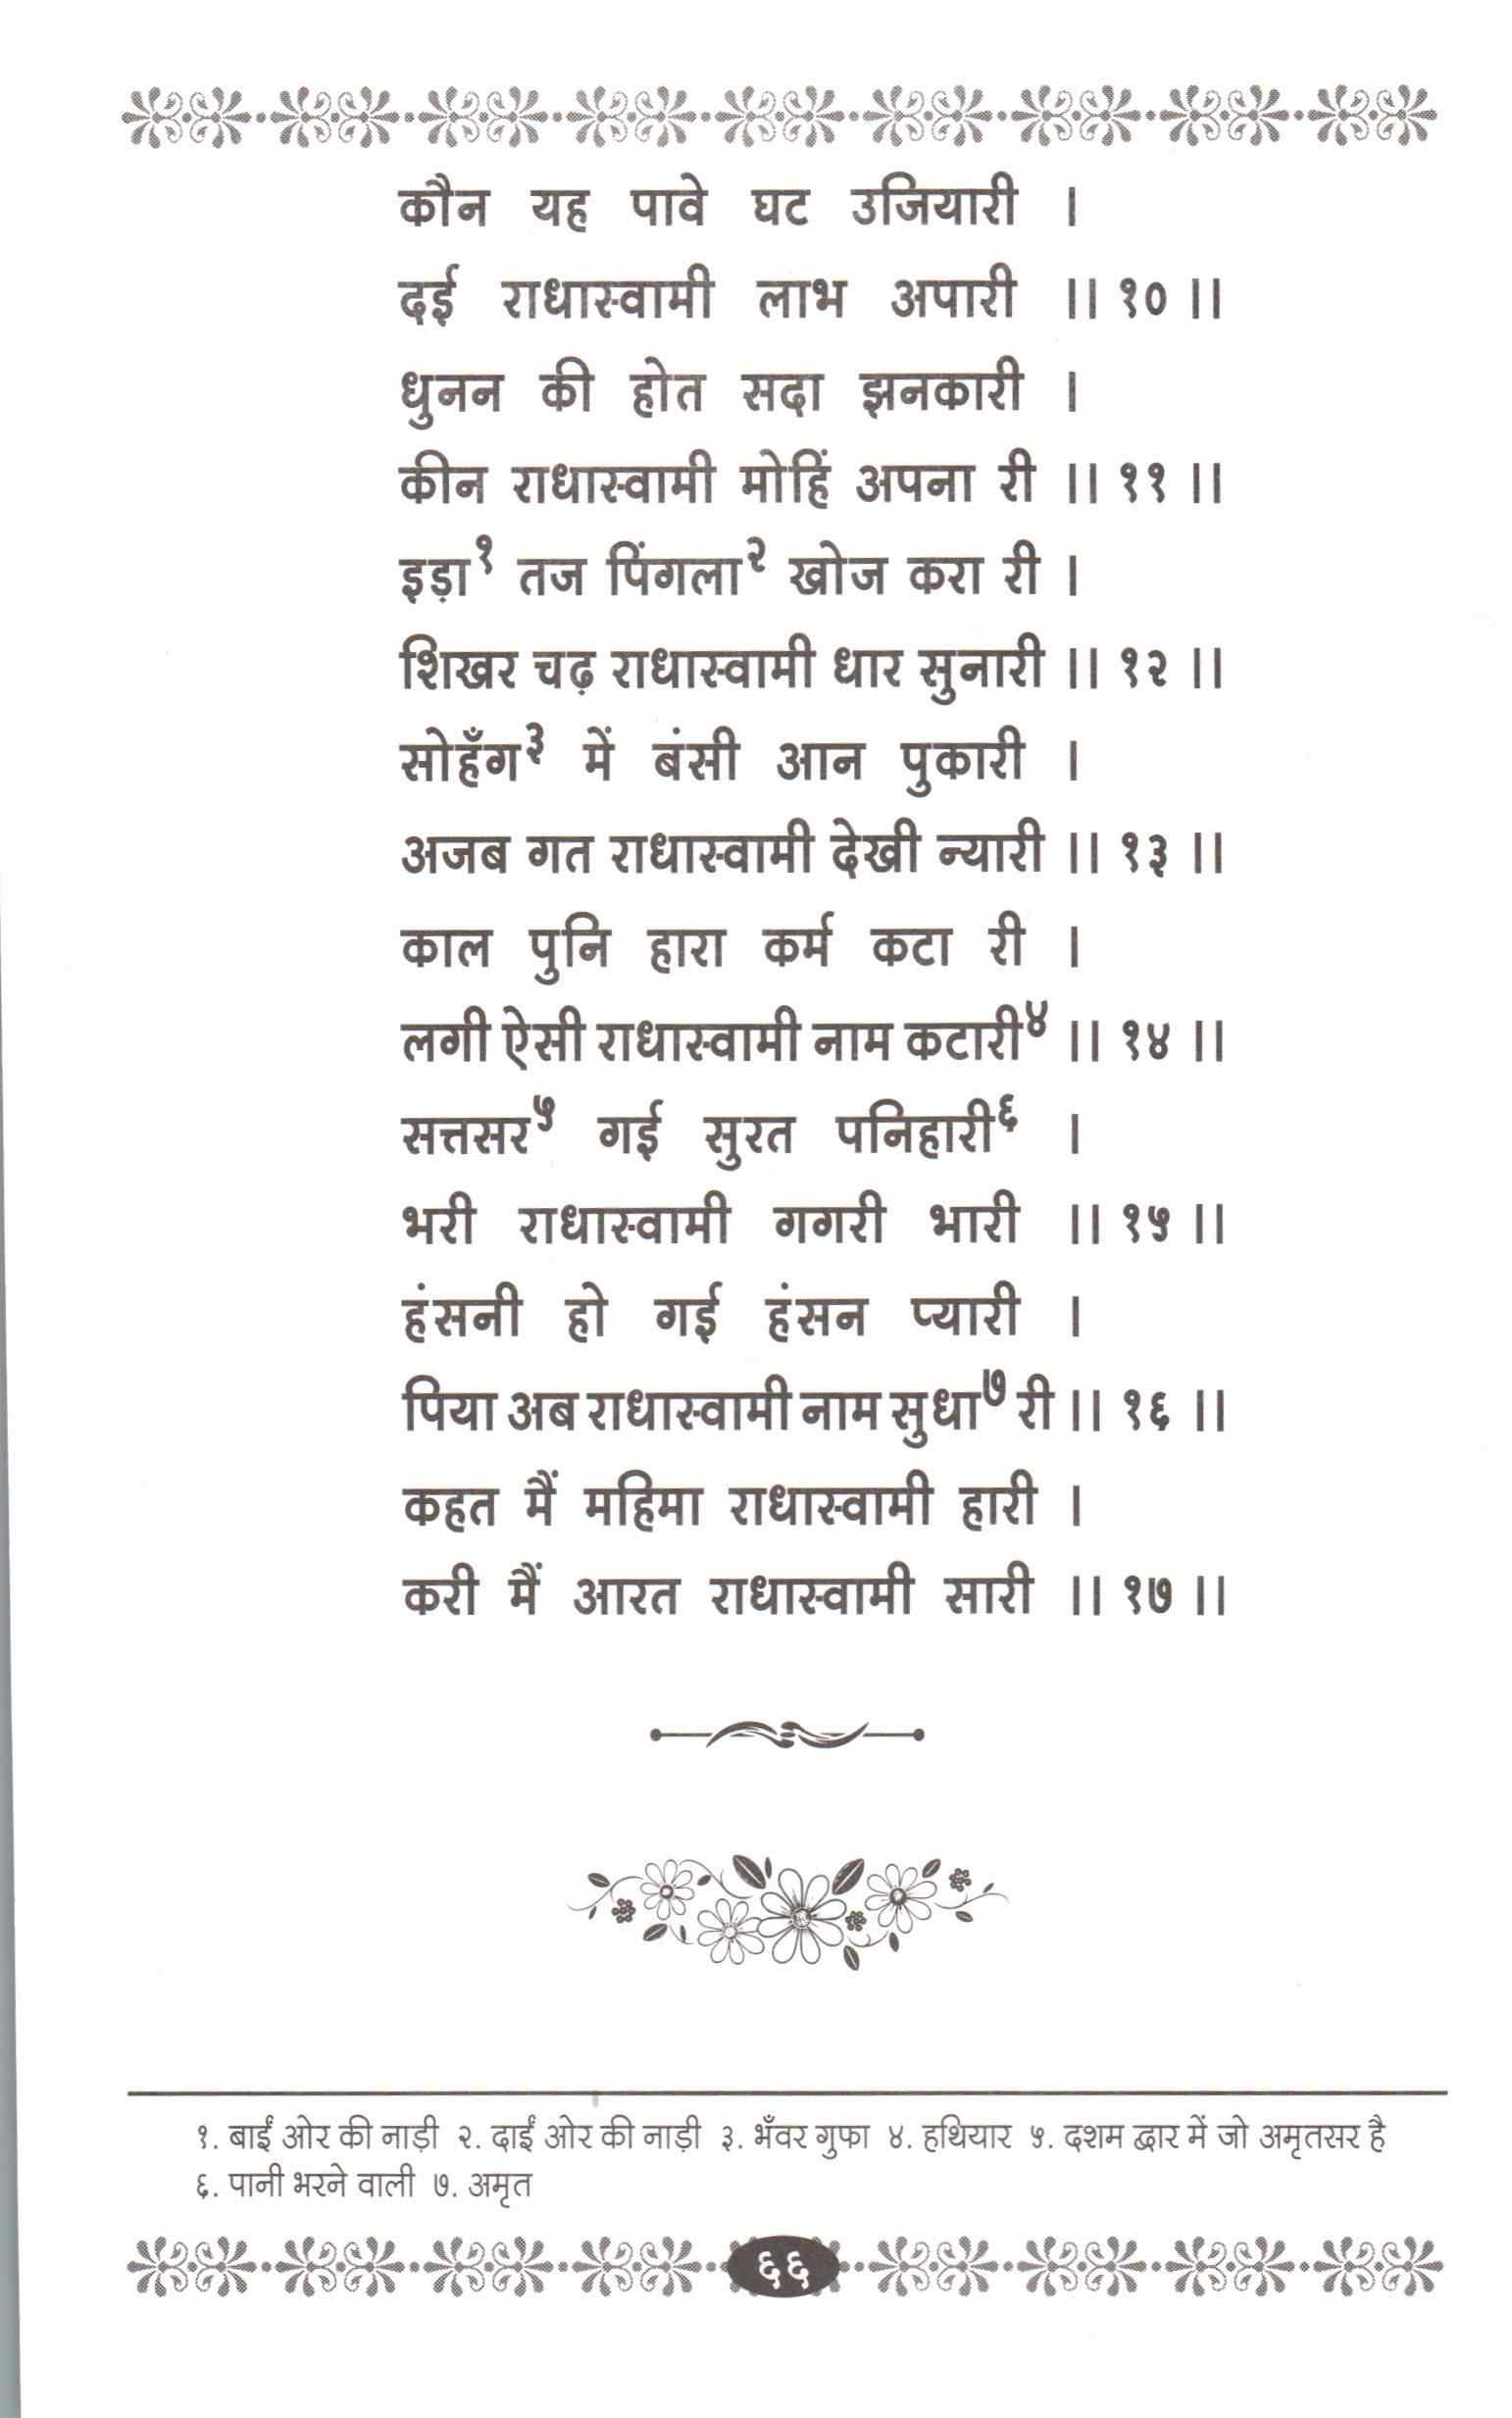 कौन यह पावे घट उजियारी ।
दई राधास्वामी लाभ अपारी ।। १० ।।
धुनन की होत सदा झनकारी ।
कीन राधास्वामी मोहिं अपना री ।। ११ ।।
इड़ा१ तज पिंगला२ खोज करा री ।
शिखर चढ़ राधास्वामी धार सुनारी ।। १२ ।।
सोहँग३ में बंसी आन पुकारी ।
अजब गत राधास्वामी देखी न्यारी ।। १३ ।।
काल पुनि हारा कर्म कटा री ।
लगी ऐसी राधास्वामी नाम कटारी४ ।। १४ ।।
सत्तसर५ गई सुरत पनिहारी६ ।
भरी राधास्वामी गगरी भारी ।। १५ ।।
हंसनी हो गई हंसन प्यारी ।
पिया अब राधास्वामी नाम सुधा७ री ।। १६ ।।
कहत मैं महिमा राधास्वामी हारी ।
करी मैं आरत राधास्वामी सारी ।। १७ ।।
१. बाईं ओर की नाड़ी २. दाईं ओर की नाड़ी ३. भँवर गुफा ४. हथियार ५. दशम द्वार में जो अमृतसर है
६. पानी भरने वाली ७. अमृत
६६